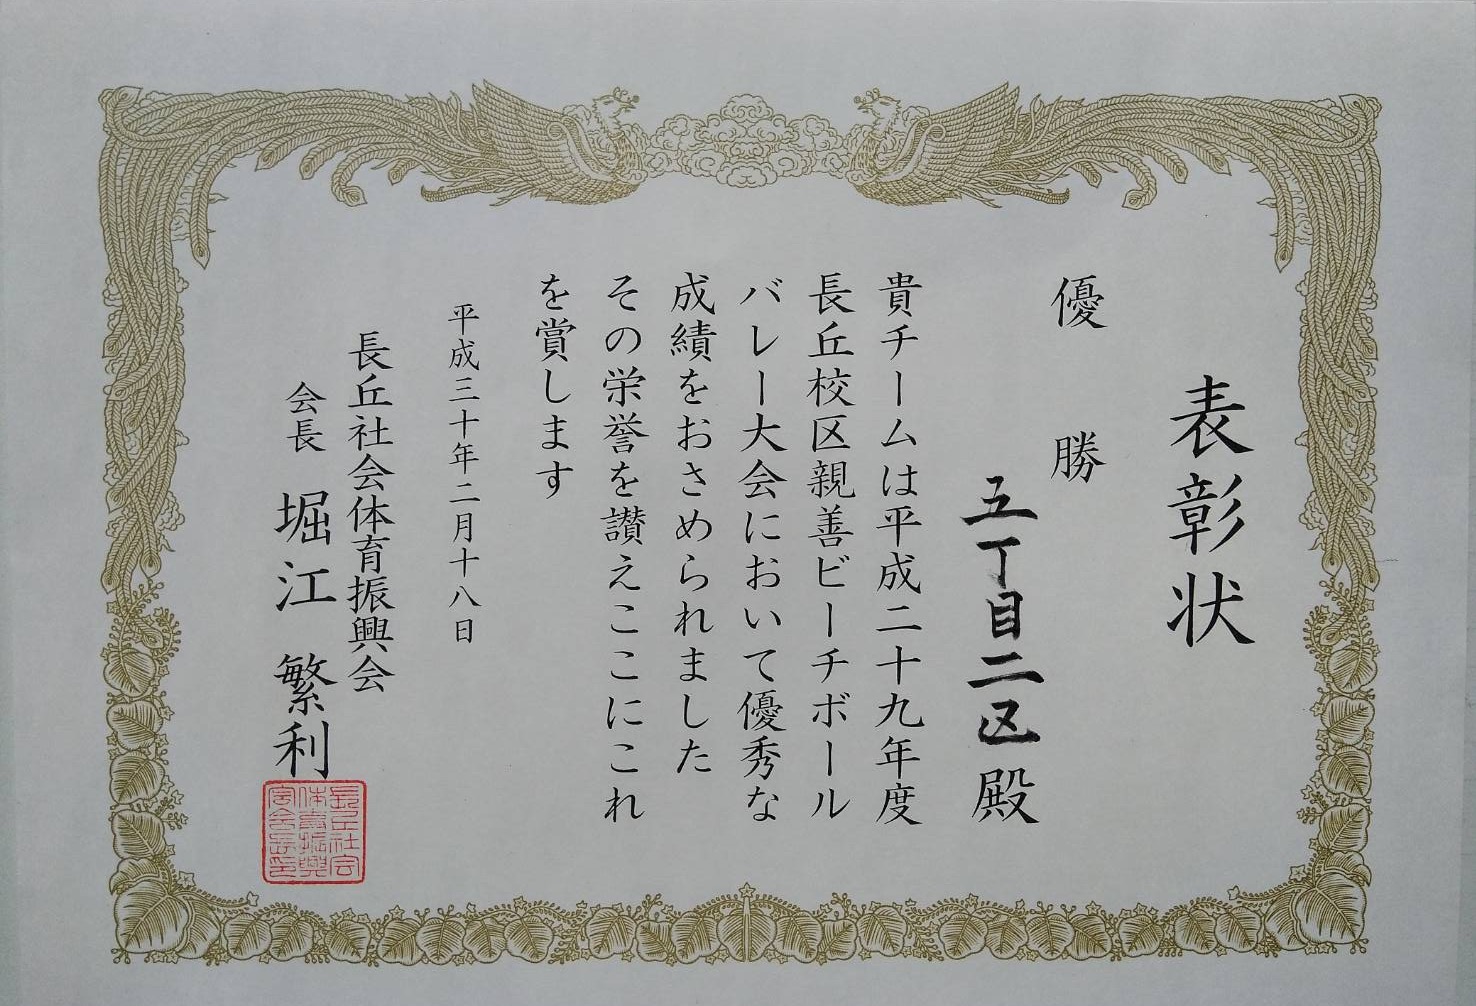 表彰状
優勝
五丁目二区殿
貴チームは平成二十九年度
長丘校区親善ビーチボール
バレー大会において優秀な
成績をおさめられました
その栄誉を讃えここにこれ
を賞します
平成三十年二月十八日
長丘社会体育振興会
会長 堀江繁利
長丘社会
体育振興
会会長印